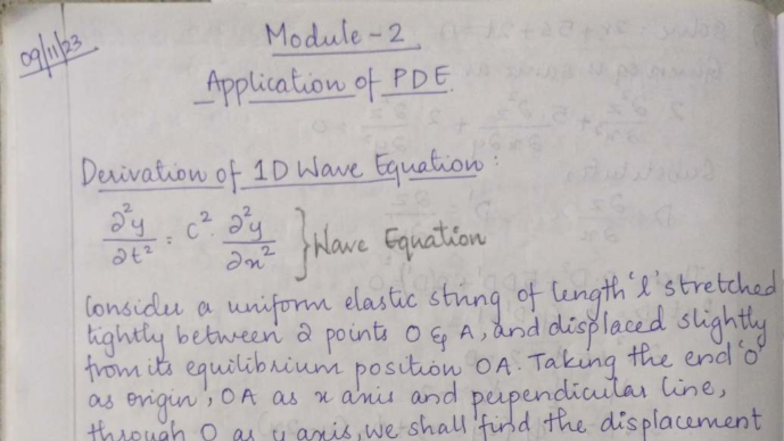 09/11/23
Module - 2
Application of PDE.
Derivation of 1D Wave Equation :
∂²y/∂t² = C². ∂²y/∂x² } Wave Equation
Consider a uniform elastic string of length 'l' stretched
tightly between 2 points O & A, and displaced slightly
from its equilibrium position OA. Taking the end 'O'
as origin, OA as x axis and perpendicular line,
through O as y axis, we shall find the displacement